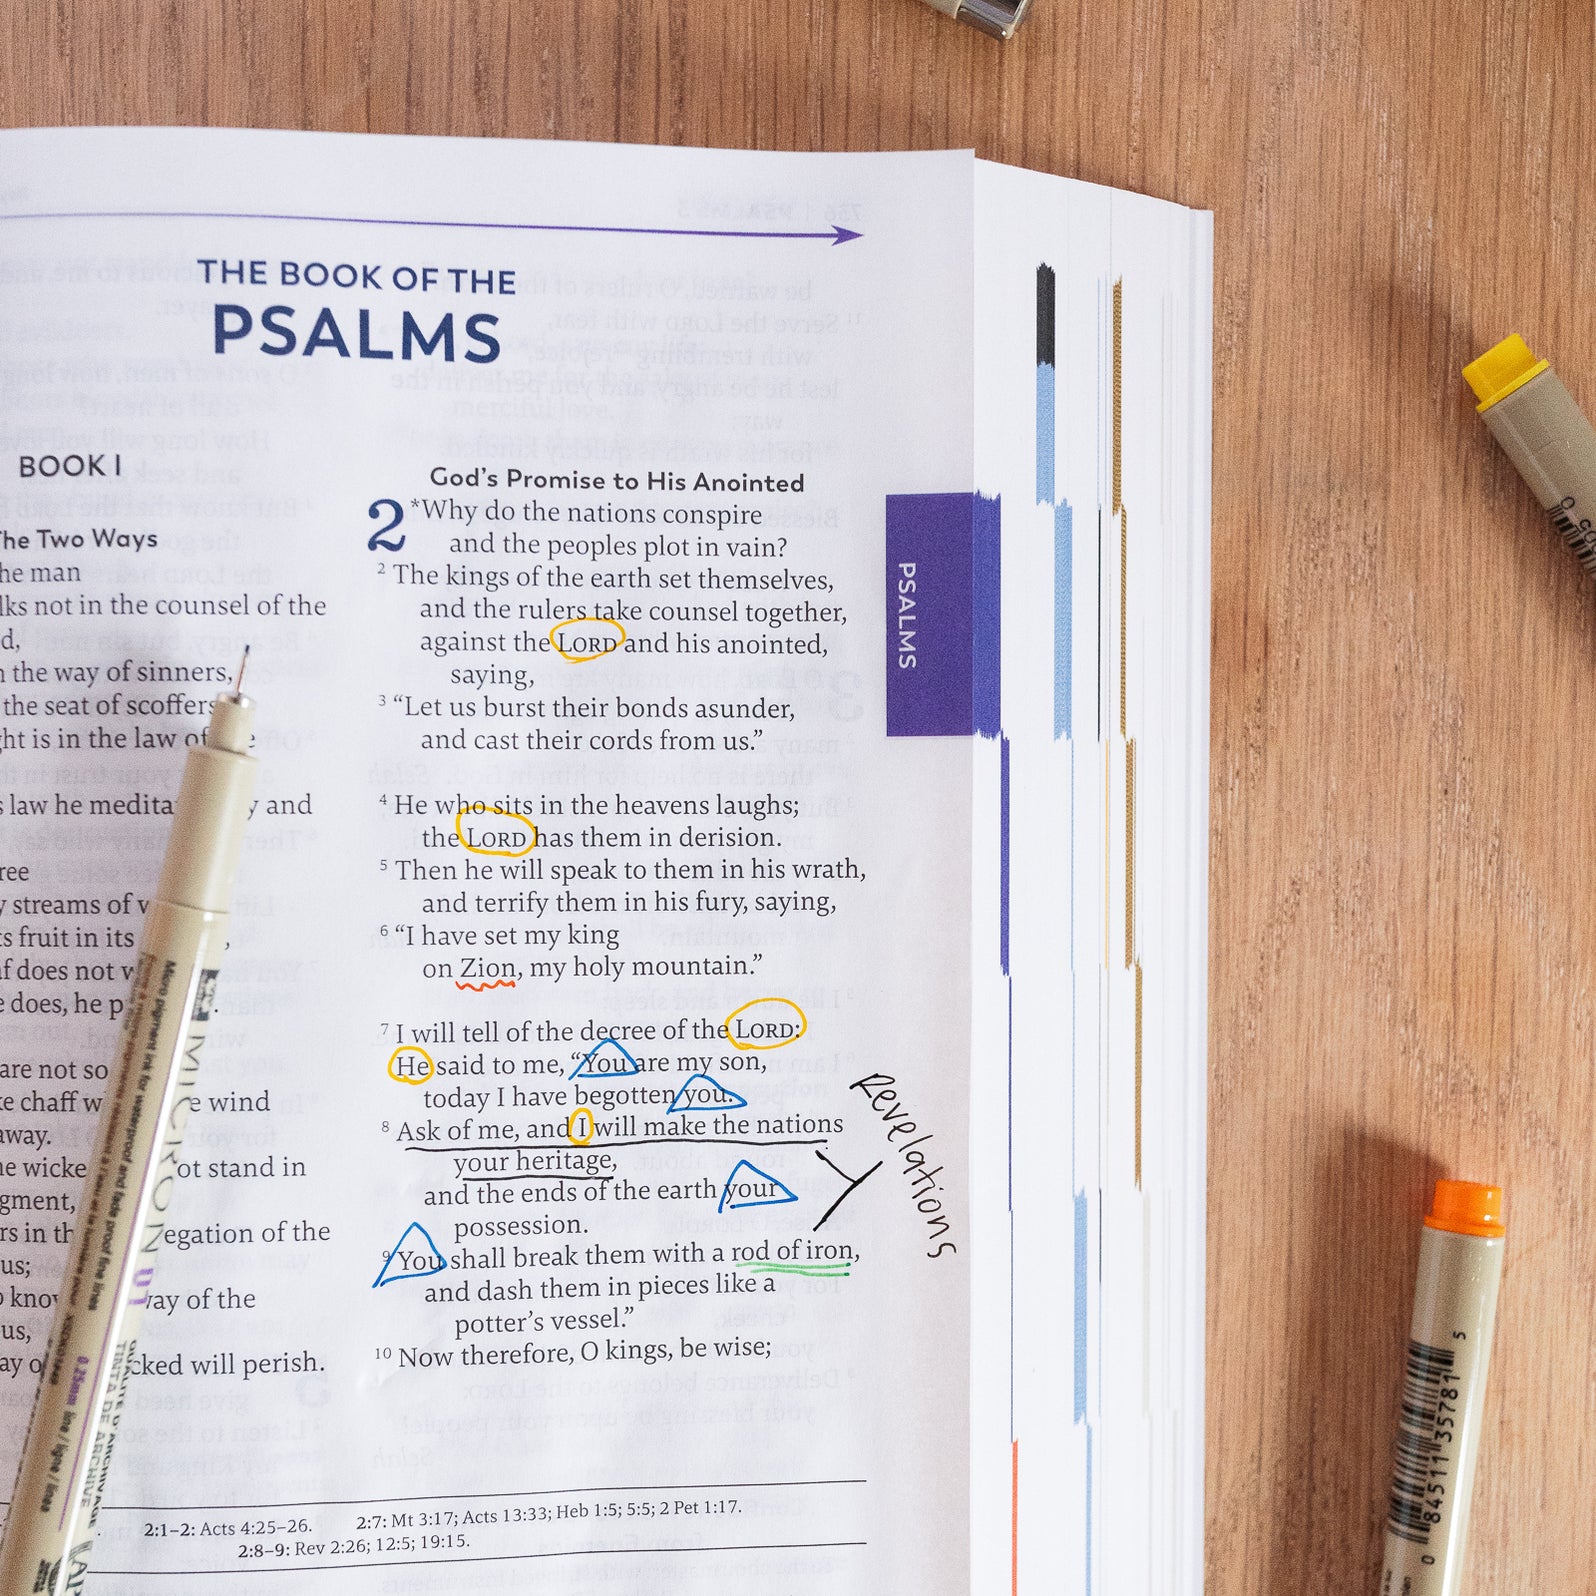 THE BOOK OF THE
PSALMS
BOOK I
The Two Ways
he man
lks not in the counsel of the
d,
the way of sinners,
the seat of scoffers
ht is in the law of
law he medita y and
ree
streams of
s fruit in its ,
f does not
does, he p .
are not so
ke chaff w e wind
away.
he wicke ot stand in
gment,
rs in th egation of the
us;
know way of the
us,
ay o cked will perish.
God's Promise to His Anointed
2 *Why do the nations conspire
and the peoples plot in vain?
2 The kings of the earth set themselves,
and the rulers take counsel together,
against the LORD and his anointed,
saying,
3 “Let us burst their bonds asunder,
and cast their cords from us.”
4 He who sits in the heavens laughs;
the LORD has them in derision.
5 Then he will speak to them in his wrath,
and terrify them in his fury, saying,
6 “I have set my king
on Zion, my holy mountain.”
7 I will tell of the decree of the LORD:
He said to me, “You are my son,
today I have begotten you.
8 Ask of me, and I will make the nations
your heritage,
and the ends of the earth your
possession.
9 You shall break them with a rod of iron,
and dash them in pieces like a
potter's vessel.”
10 Now therefore, O kings, be wise;
Revelations
PSALMS
2:1–2: Acts 4:25–26. 2:7: Mt 3:17; Acts 13:33; Heb 1:5; 5:5; 2 Pet 1:17.
2:8–9: Rev 2:26; 12:5; 19:15.
MICRON 01
Micro pigment ink for waterproof and fade proof fine lines
0.25mm fine / ligne / línea
0 84511 35781 5